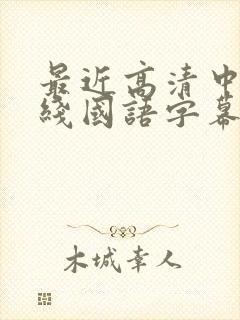 最近高清中
綫國語字幕
木城幸人